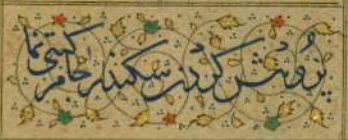 پژوهش کردن سکندر جام کیتی نما